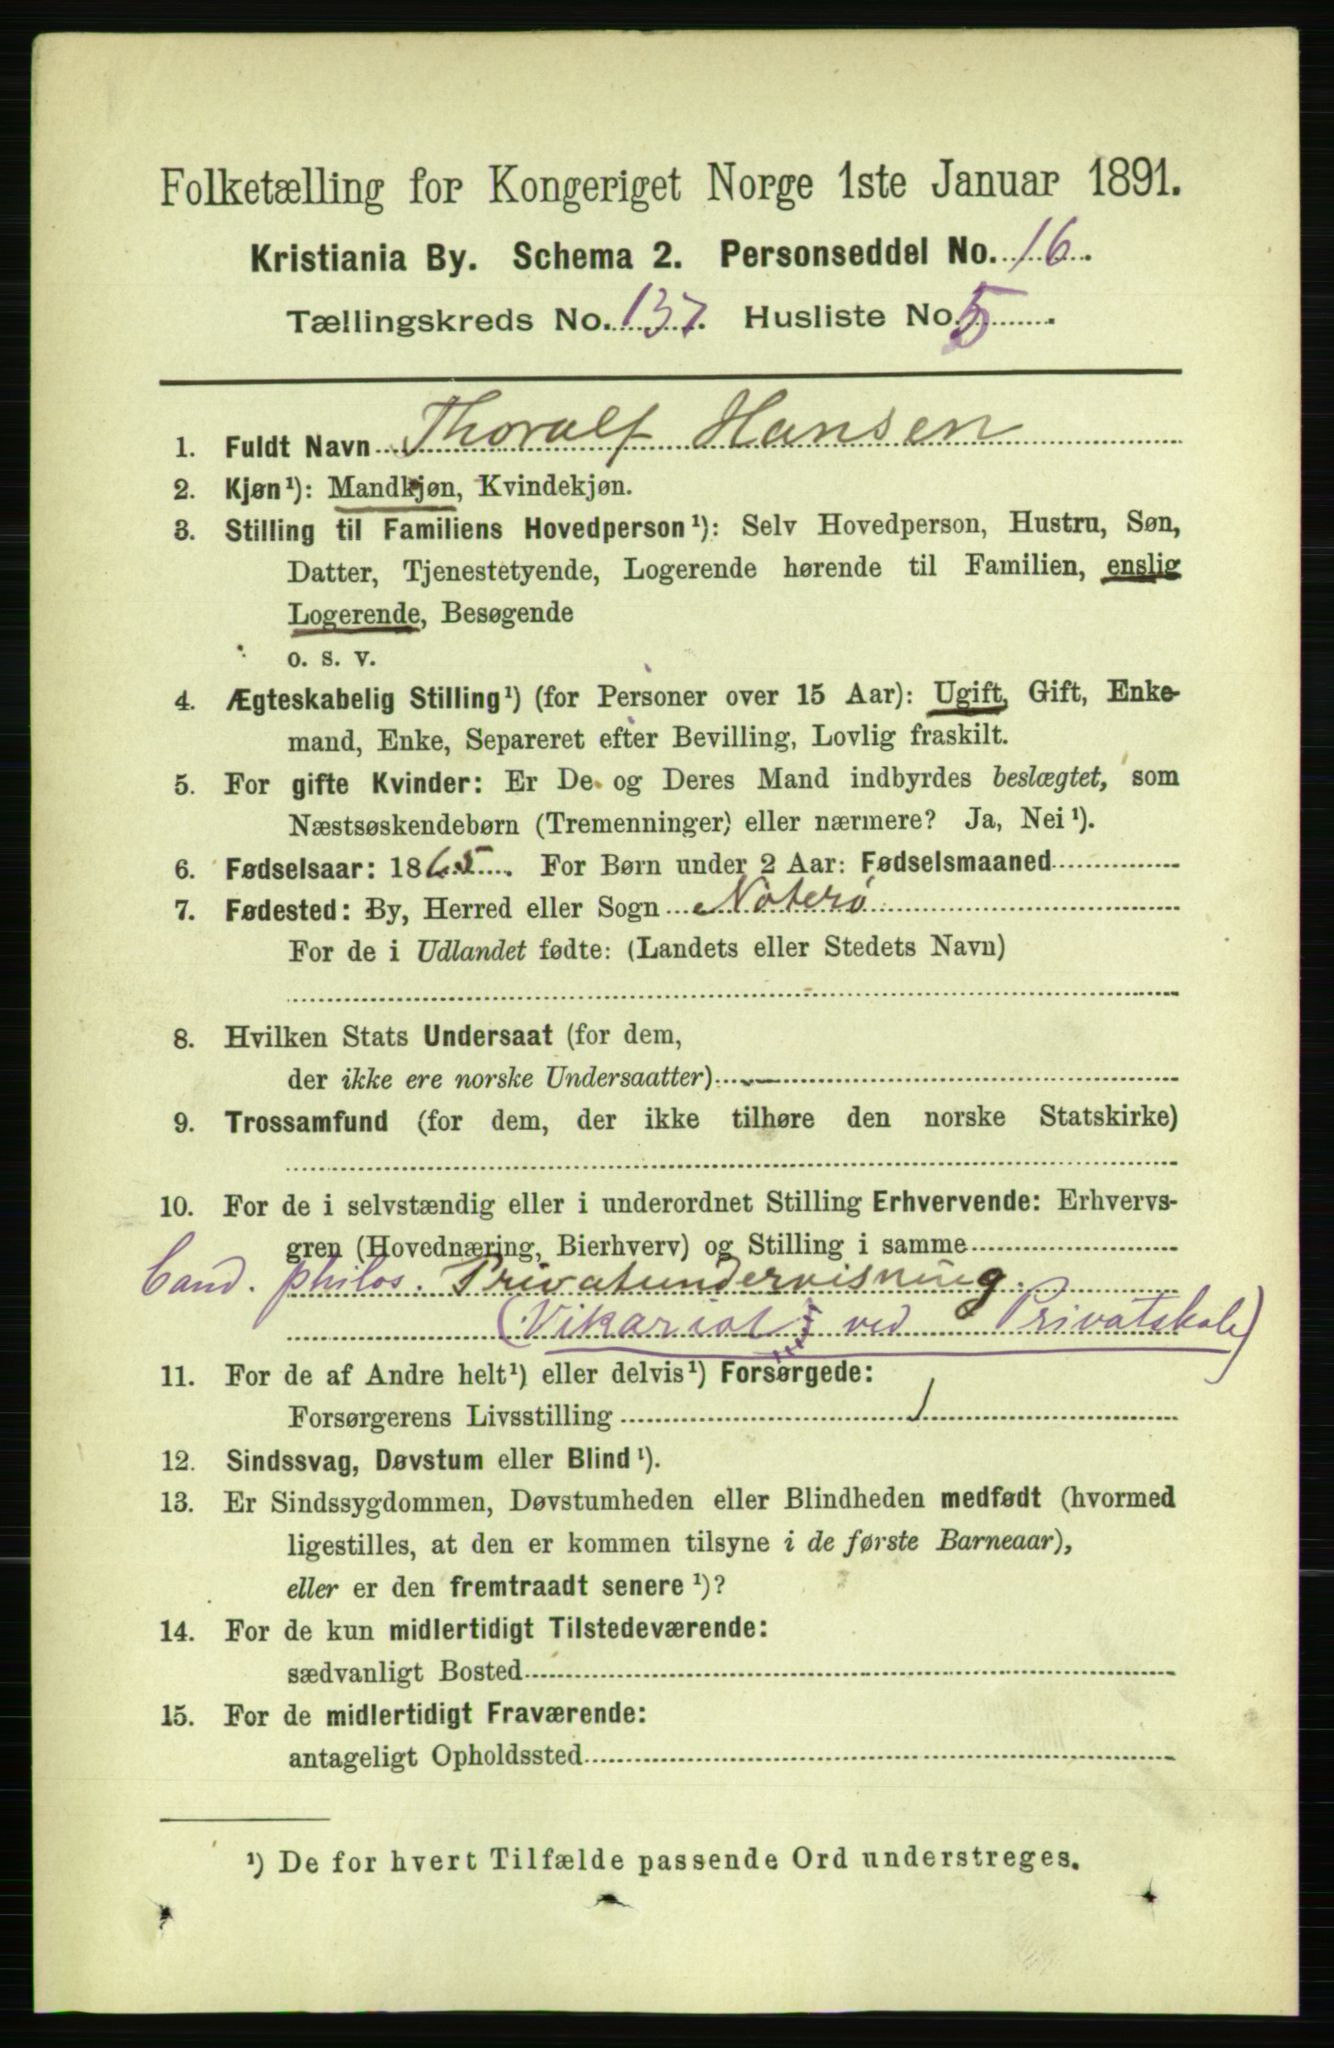 Folketælling for Kongeriget Norge 1ste Januar 1891.
Kristiania By. Schema 2. Personseddel No. 16.
Tællingskreds No. 137. Husliste No. 5.
1. Fuldt Navn Thoralf Hansen
2. Kjøn¹): Mandkjøn, Kvindekjøn.
3. Stilling til Familiens Hovedperson¹): Selv Hovedperson, Hustru, Søn,
Datter, Tjenestetyende, Logerende hørende til Familien, enslig
Logerende, Besøgende
o. s. v.
4. Ægteskabelig Stilling¹) (for Personer over 15 Aar): Ugift, Gift, Enke-
mand, Enke, Separeret efter Bevilling, Lovlig fraskilt.
5. For gifte Kvinder: Er De og Deres Mand indbyrdes beslægtet, som
Næstsøskendebørn (Tremenninger) eller nærmere? Ja, Nei¹).
6. Fødselsaar: 1865. For Børn under 2 Aar: Fødselsmaaned
7. Fødested: By, Herred eller Sogn Nøterø
For de i Udlandet fødte: (Landets eller Stedets Navn)
8. Hvilken Stats Undersaat (for dem,
der ikke ere norske Undersaatter)
9. Trossamfund (for dem, der ikke tilhøre den norske Statskirke)
10. For de i selvstændig eller i underordnet Stilling Erhvervende: Erhvervs-
gren (Hovednæring, Bierhverv) og Stilling i samme
Cand. philos. Privatundervisning.
(Vikariat ved Privatskole)
11. For de af Andre helt¹) eller delvis¹) Forsørgede:
Forsørgerens Livsstilling
12. Sindssvag, Døvstum eller Blind¹).
13. Er Sindssygdommen, Døvstumheden eller Blindheden medfødt (hvormed
ligestilles, at den er kommen tilsyne i de første Barneaar),
eller er den fremtraadt senere¹)?
14. For de kun midlertidigt Tilstedeværende:
sædvanligt Bosted
15. For de midlertidigt Fraværende:
antageligt Opholdssted
¹) De for hvert Tilfælde passende Ord understreges.